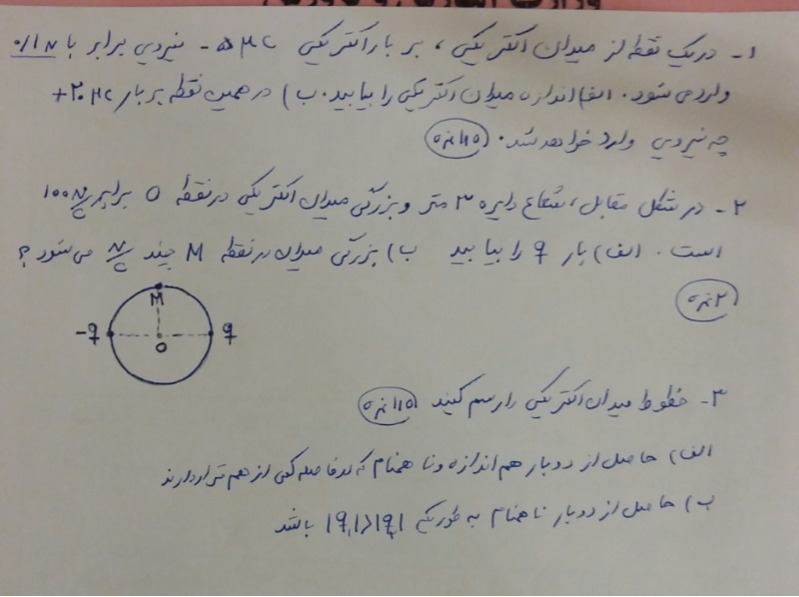 ۱- در یک نقطه از میدان الکتریکی، بر بار الکتریکی -۵ μc نیرویی برابر با ۰/۱ N
وارد می شود. الف) اندازه میدان الکتریکی را بیابید. ب) در همین نقطه بر بار +۲۰ μc
چه نیرویی وارد خواهد شد. (۱/۵ نمره)
۲- در شکل مقابل، شعاع دایره ۳ متر و بزرگی میدان الکتریکی در نقطه O برابر ۱۰۰ N/C
است. الف) بار q را بیابید ب) بزرگی میدان در نقطه M چند N/C می شود؟
(۲ نمره)
M
-q O q
۳- خطوط میدان الکتریکی را رسم کنید (۱/۵ نمره)
الف) حاصل از دو بار هم اندازه و نا همنام که در فاصله کمی از هم قرار دارند
ب) حاصل از دو بار نا همنام به طوریکه باشد